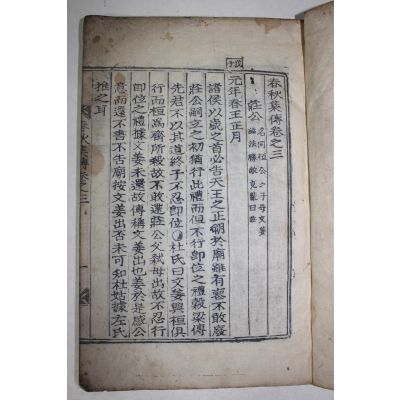 春秋集傳卷之三
莊公 名同桓公之子母文姜
謚法勝敵克亂曰莊
元年春王正月
諸侯以歲之首必告天王之正朔於廟雖有喪不敢廢
莊公嗣立之初猶行此禮而但不行卽位之禮穀梁傳
先君不以其道終子不忍卽位○杜氏曰文姜與桓俱
行而桓爲齊所殺故不敢還莊公父弑母出故不忍行
卽位之禮據文姜未還故傳稱文姜出也姜於是感公
意而還不書不告廟按文姜出否未可知杜姑據左氏
推之耳
春秋集傳卷之三
一